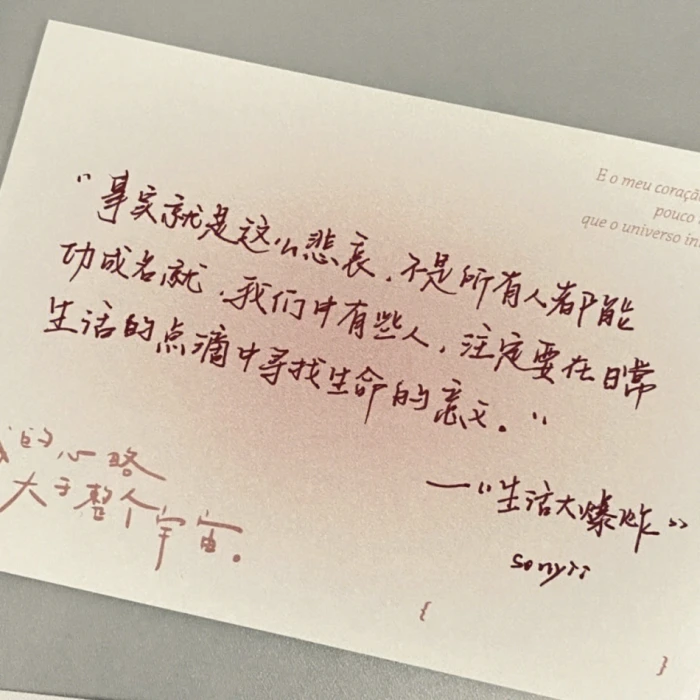 E o meu coração
pouco
que o universo in
“事实就是这么悲哀，不是所有人都能
功成名就，我们中有些人，注定要在日常
生活的点滴中寻找生命的意义。”
——“生活大爆炸”
sonyii
的心略
大于整个宇宙。
{
}